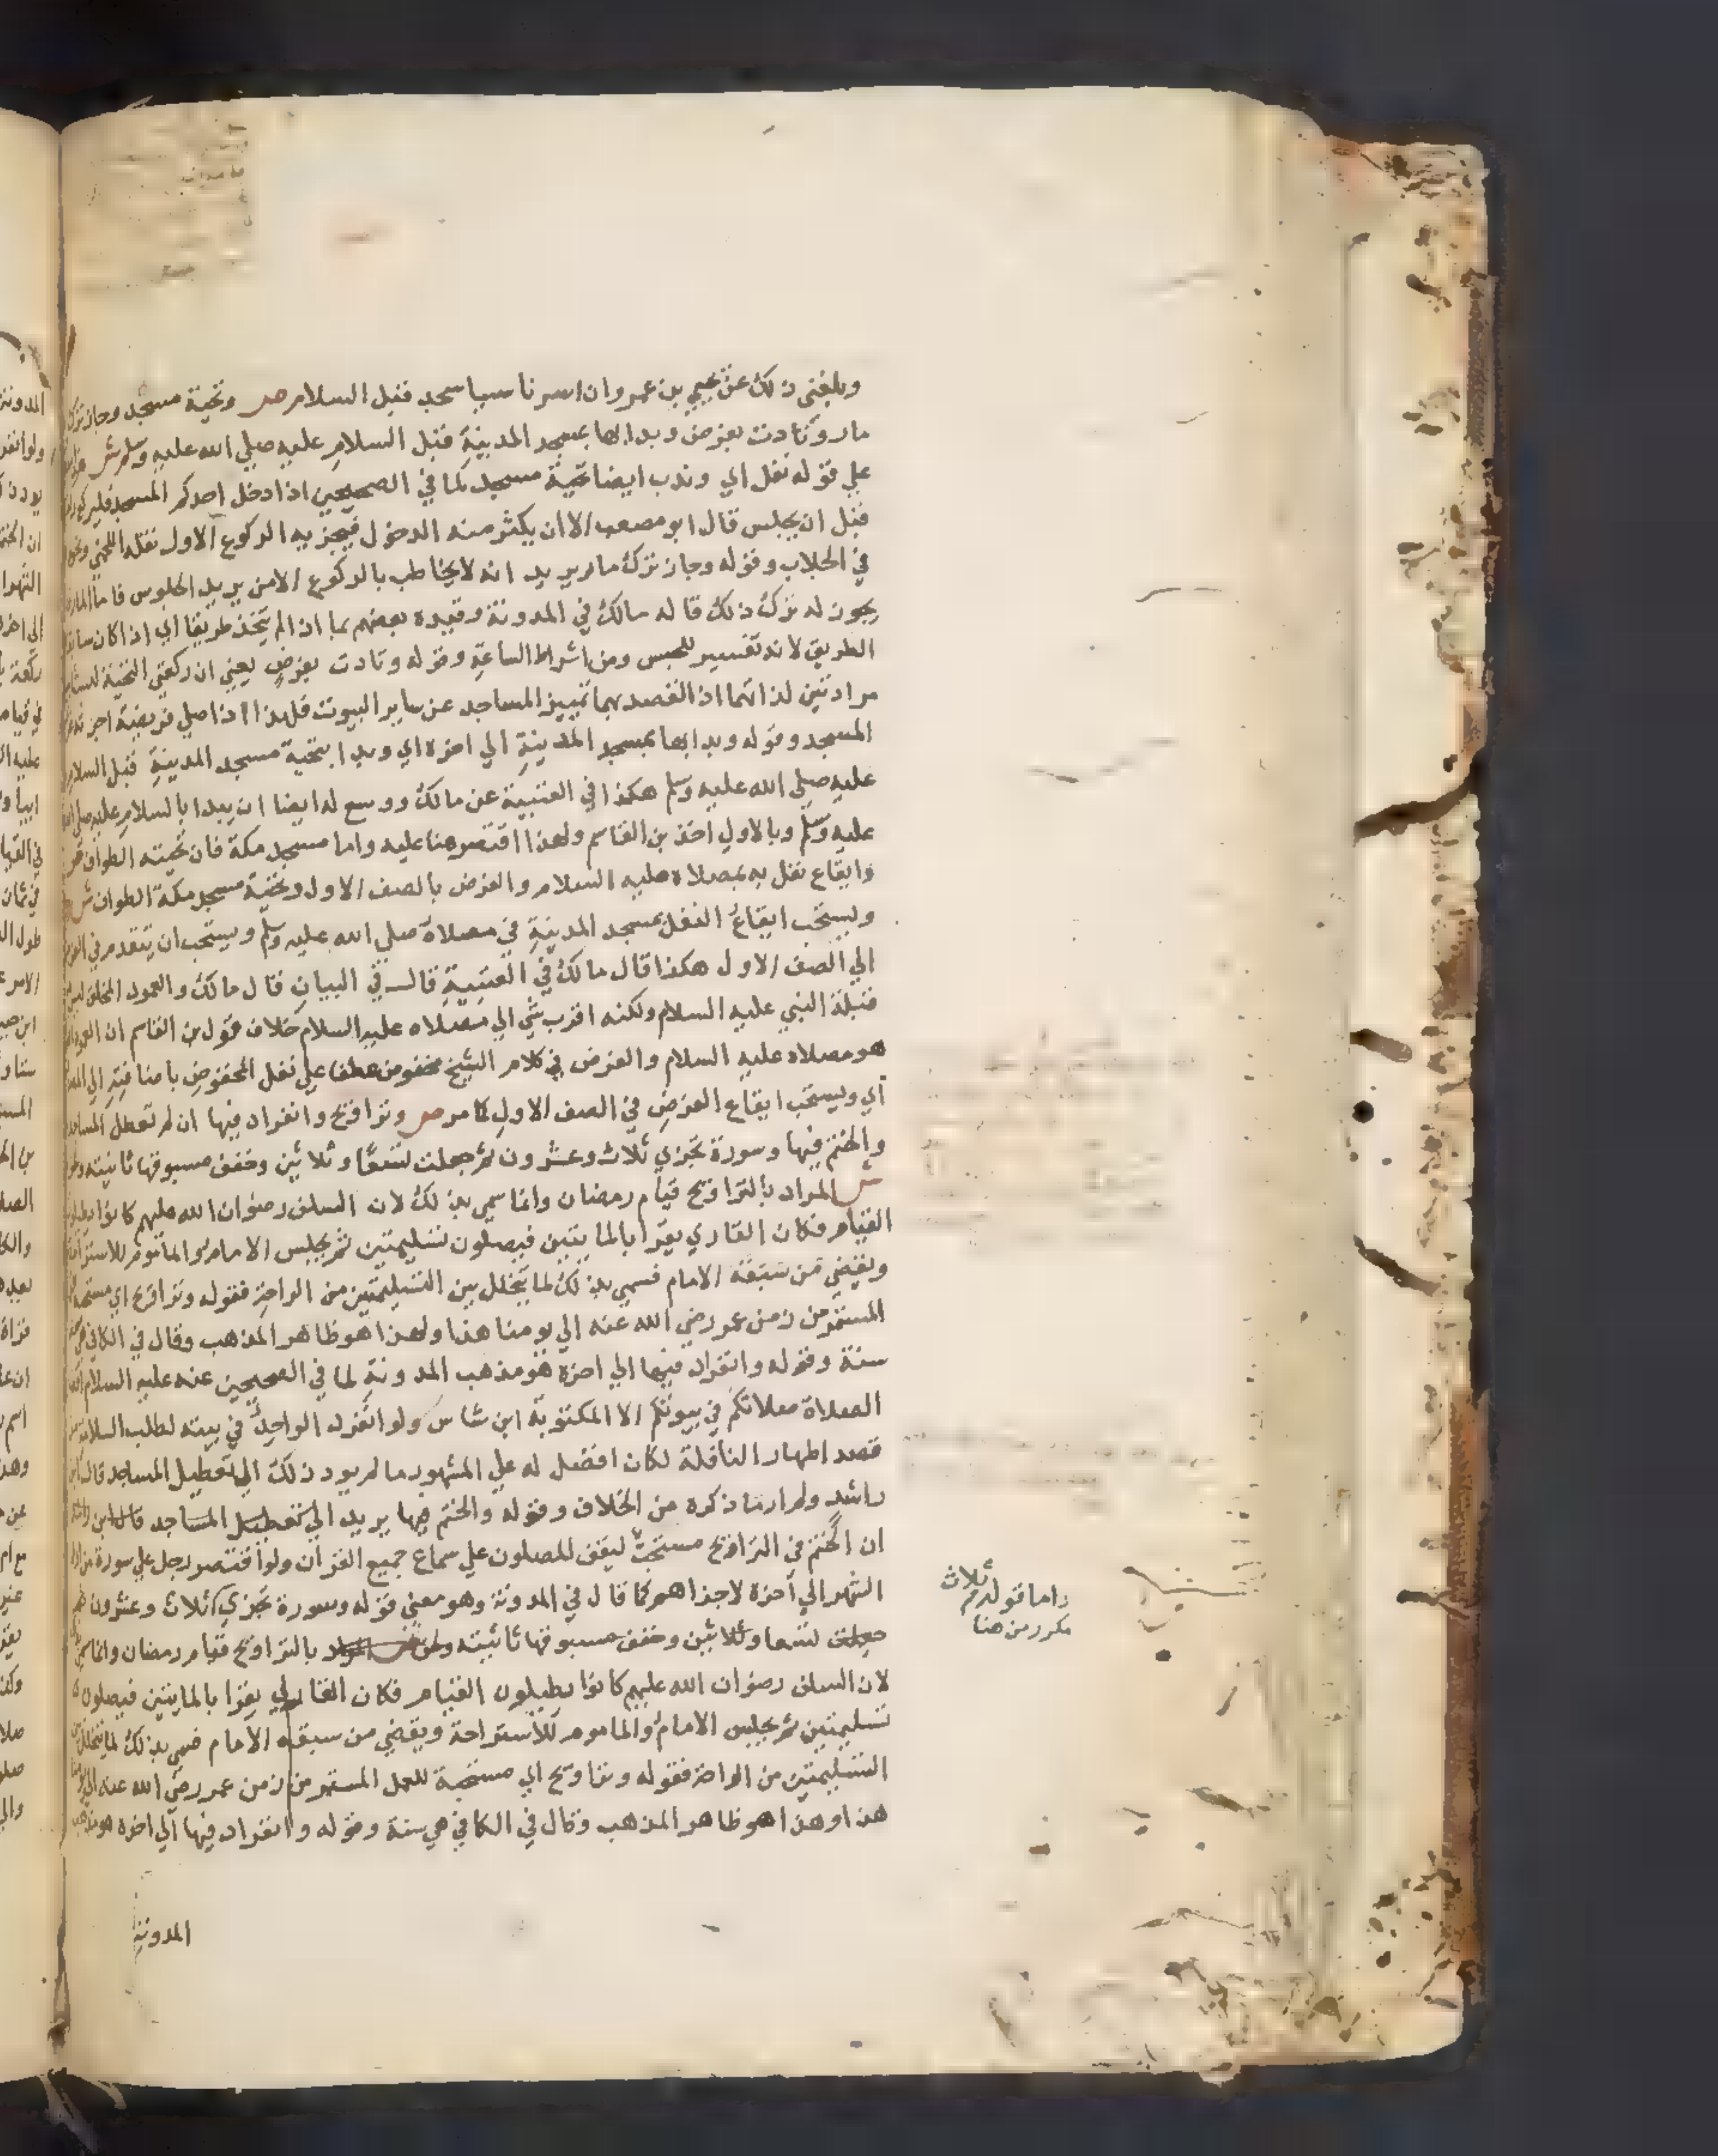 وبلغني ذلك عن يحيى بن عمر وان اسرناسيا سجد قبل السلام ص وتحية مسجد وجاز ترك
مار وتأدت بفرض وبدا بها بمسجد المدينة قبل السلام عليه صلي الله عليه وسلم ش
علي قوله نفل اي وندب ايضا تحية مسجد لما في الصحيحين اذا دخل احدكم المسجد فليركع
قبل ان يجلس قال ابو مصعب الا ان يكثر منه الدخول فيجزيه الركوع الاول نقله اللخمي
في الجلاب وقوله وجاز ترك مار يريد انه لا يخاطب بالركوع الا من يريد الجلوس فاما المار
يجوز له ترك ذلك قاله مالك في المدونة وقيده بعضهم بما اذا لم يتخذ طريقا اي اذا كان سابق
الطريق لانه تغيير للحبس ومن اشراط الساعة وقوله وتادت بفرض يعني ان ركعتي التحية ليستا
مرادتين لذاتهما اذ القصد بهما تمييز المساجد عن ساير البيوت فلهذا اذا صلي فريضة اجزته
المسجد وقوله وبدا بها بمسجد المدينة الي اخره اي وبدا بتحية مسجد المدينة قبل السلام
عليه صلي الله عليه وسلم هكذا في العتبية عن مالك ووسع له ايضا ان يبدا بالسلام عليه صلي الله
عليه وسلم وبالاول اخذ بن القاسم ولهذا اقتصر هنا عليه واما مسجد مكة فان تحيته الطواف ص
وايقاع نفل به بمصلاه عليه السلام والفرض بالصف الاول وتحية مسجد مكة الطواف ش
ويستحب ايقاع النفل بمسجد المدينة في مصلاه صلي الله عليه وسلم ويستحب ان يتقدم في الفرض
الي الصف الاول هكذا قال مالك في العتبية قال في البيان قال مالك والعمود المخلق ليس
قبلة النبي عليه السلام ولكنه اقرب شي الي مصلاه عليه السلام خلاف قول بن القاسم ان العمود
هو مصلاه عليه السلام والفرض في كلام الشيخ مخفوض عطفا علي نفل المخفوض باضافته الي المصدر
اي ويستحب ايقاع الفرض في الصف الاول كما مر ص وتراويح وانفراد فيها ان لم تعطل المساجد
والختم فيها وسورة تجزي ثلاث وعشرون ثم جعلت تسعا وثلاثين وخفف مسبوقها ثانيته
ش المراد بالتراويح قيام رمضان وانما سمي بذلك لان السلف رضوان الله عليهم كانوا يطيلون
القيام فكان القاري يقرا بالمايتين فيصلون تسليمتين ثم يجلس الامام والماموم للاستراحة
ويقضي من سبقه الامام فسمي بذلك لما يتخلل بين التسليمتين من الراحة فقوله وتراويح اي مستحبة
المستمر من زمن عمر رضي الله عنه الي يومنا هذا ولهذا هو ظاهر المذهب وقال في الكافي هي
سنة وقوله وانفراد فيها الي اخره هو مذهب المدونة لما في الصحيحين عنه عليه السلام افضل
الصلاة صلاتكم في بيوتكم الا المكتوبة ابن شاس ولو انفرد الواحد في بيته لطلب السلامة من
قصد اظهار النافلة لكان افضل له علي المشهور ما لم يود ذلك الي تعطيل المساجد قال ابن
راشد ولم ار ما ذكره من الخلاف وقوله والختم فيها يريد الي تعطيل المساجد قال ابن راشد
ان الختم في التراويح مستحب ليقف المصلون علي سماع جميع القران ولو اقتصر رجل علي سورة
الشهر الي آخره لاجزاهم كما قال في المدونة وهو معني قوله وسورة تجزي ثلاث وعشرون ثم
جعلت تسعا وثلاثين وخفف مسبوقها ثانيته ولحق ش المراد بالتراويح قيام رمضان وانما سمي
لان السلف رضوان الله عليهم كانوا يطيلون القيام فكان القاري يقرا بالمايتين فيصلون
تسليمتين ثم يجلس الامام والماموم للاستراحة ويقضي من سبقه الامام فسمي بذلك لما يتخلل بين
التسليمتين من الراحة فقوله وتراويح اي مستحبة للعمل المستمر من زمن عمر رضي الله عنه الي يومنا
هذا وهذا هو ظاهر المذهب وقال في الكافي هي سنة وقوله وانفراد فيها الي اخره هو مذهب
المدونة
واما قوله ثم ثلاث
مكرر من هنا